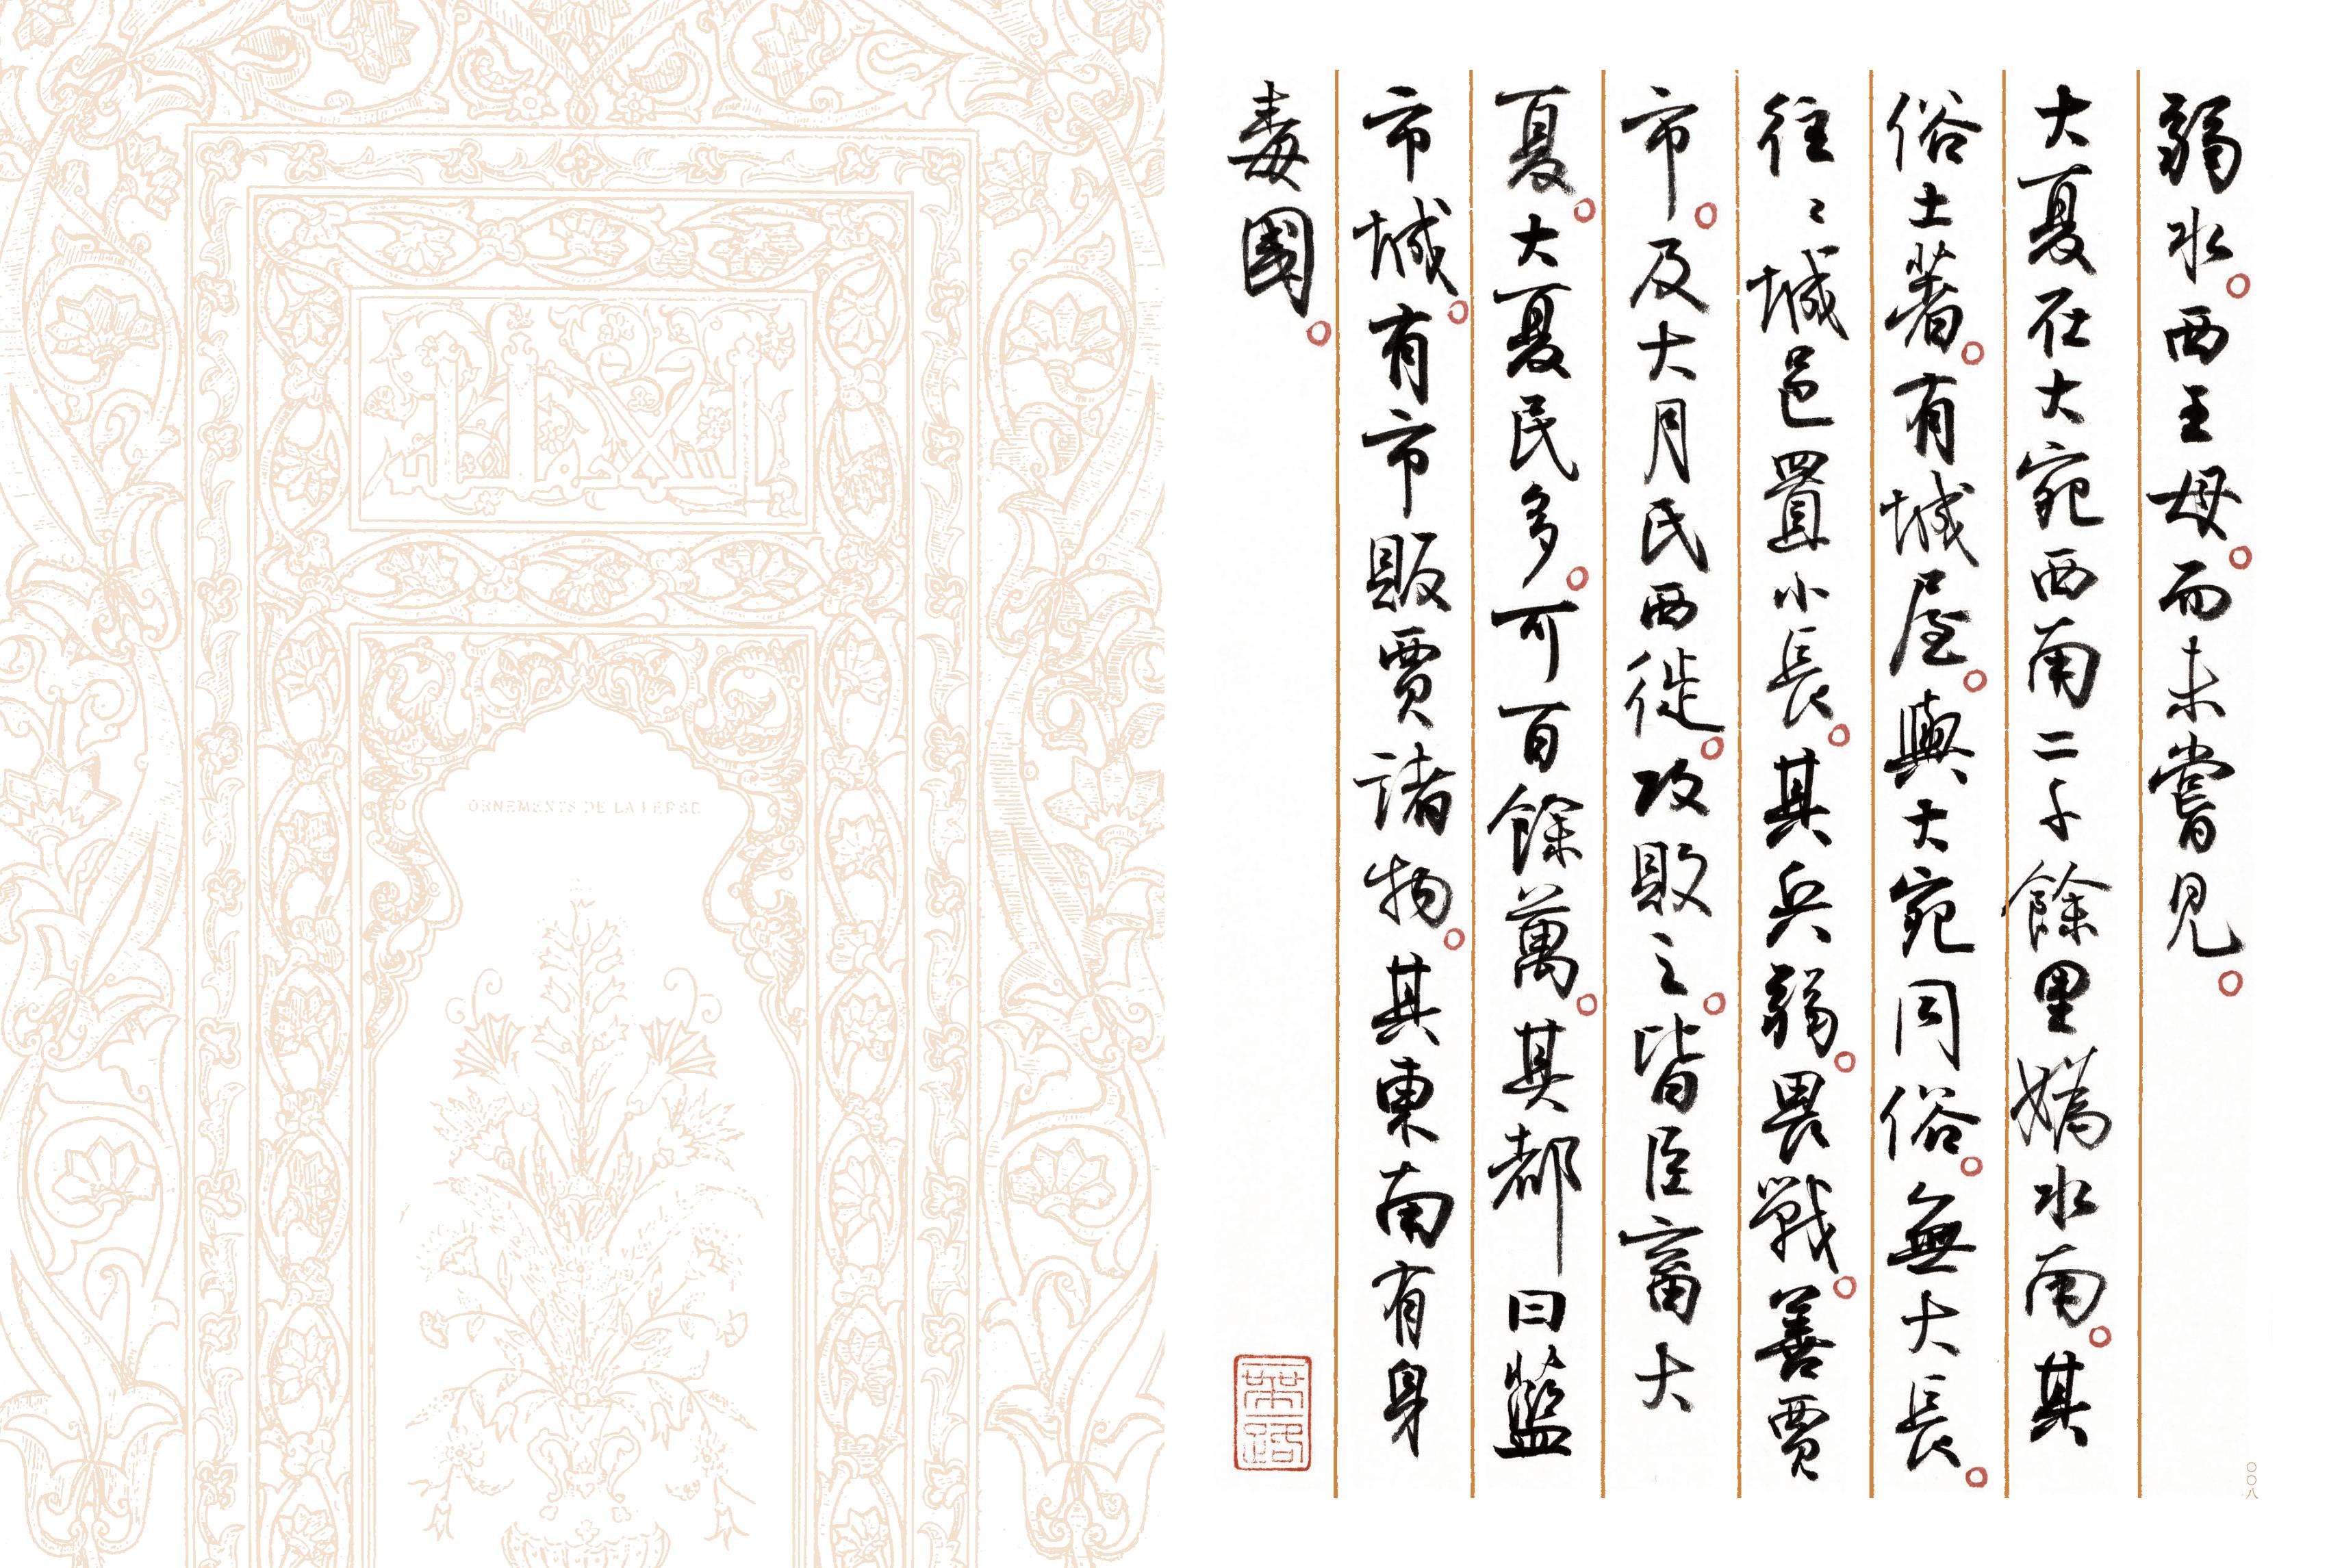 弱水。西王母。而未嘗見。
大夏在大宛西南二千餘里媯水南。其
俗土著。有城屋。與大宛同俗。無大長。
往〻城邑置小長。其兵弱。畏戰。善賈
市。及大月氏西徙。攻敗之。皆臣畜大
夏。大夏民多。可百餘萬。其都曰藍
市城。有市販賈諸物。其東南有身
毒國。
〇〇八
ORNEMENTS DE LA PERSE